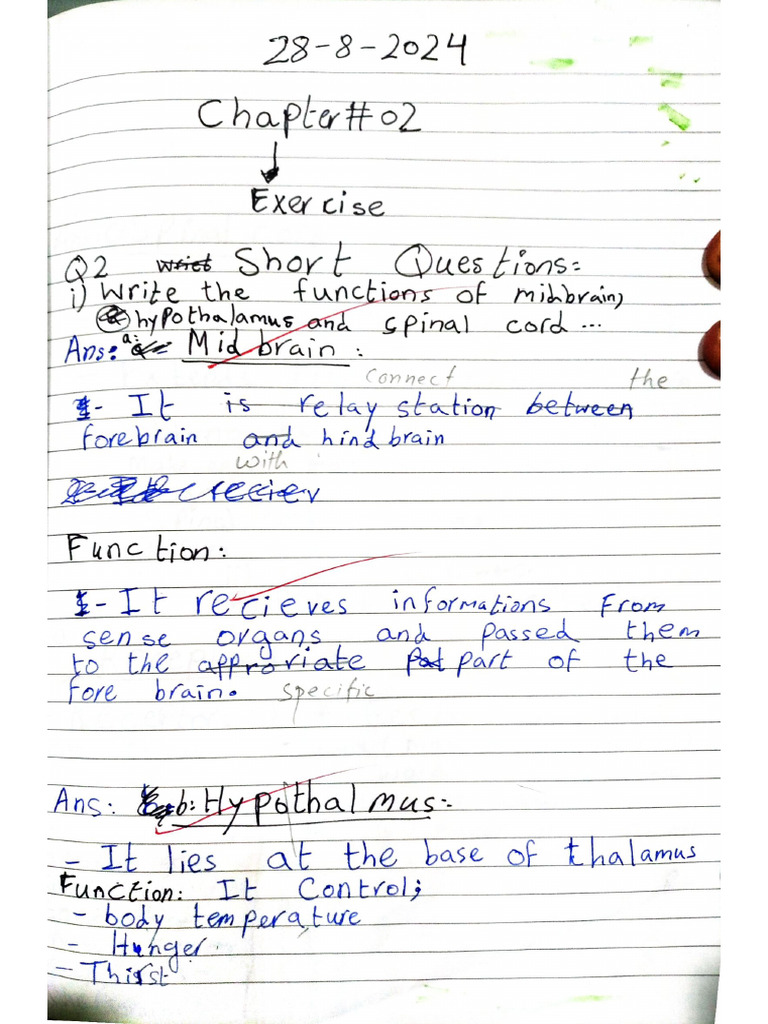 28-8-2024
Chapter#02
Exercise
Q2 Short Questions:
i) Write the functions of midbrain,
hypothalamus and spinal cord ...
Ans: a: Mid brain :
connect the
1- It is relay station between
forebrain and hind brain
with
Function:
1- It recieves informations From
sense organs and passed them
to the approriate part of the
Fore brain. specific
Ans: b: Hypothalmus:-
- It lies at the base of thalamus
Function: It Control;
- body temperature
- Hunger
- Thirst